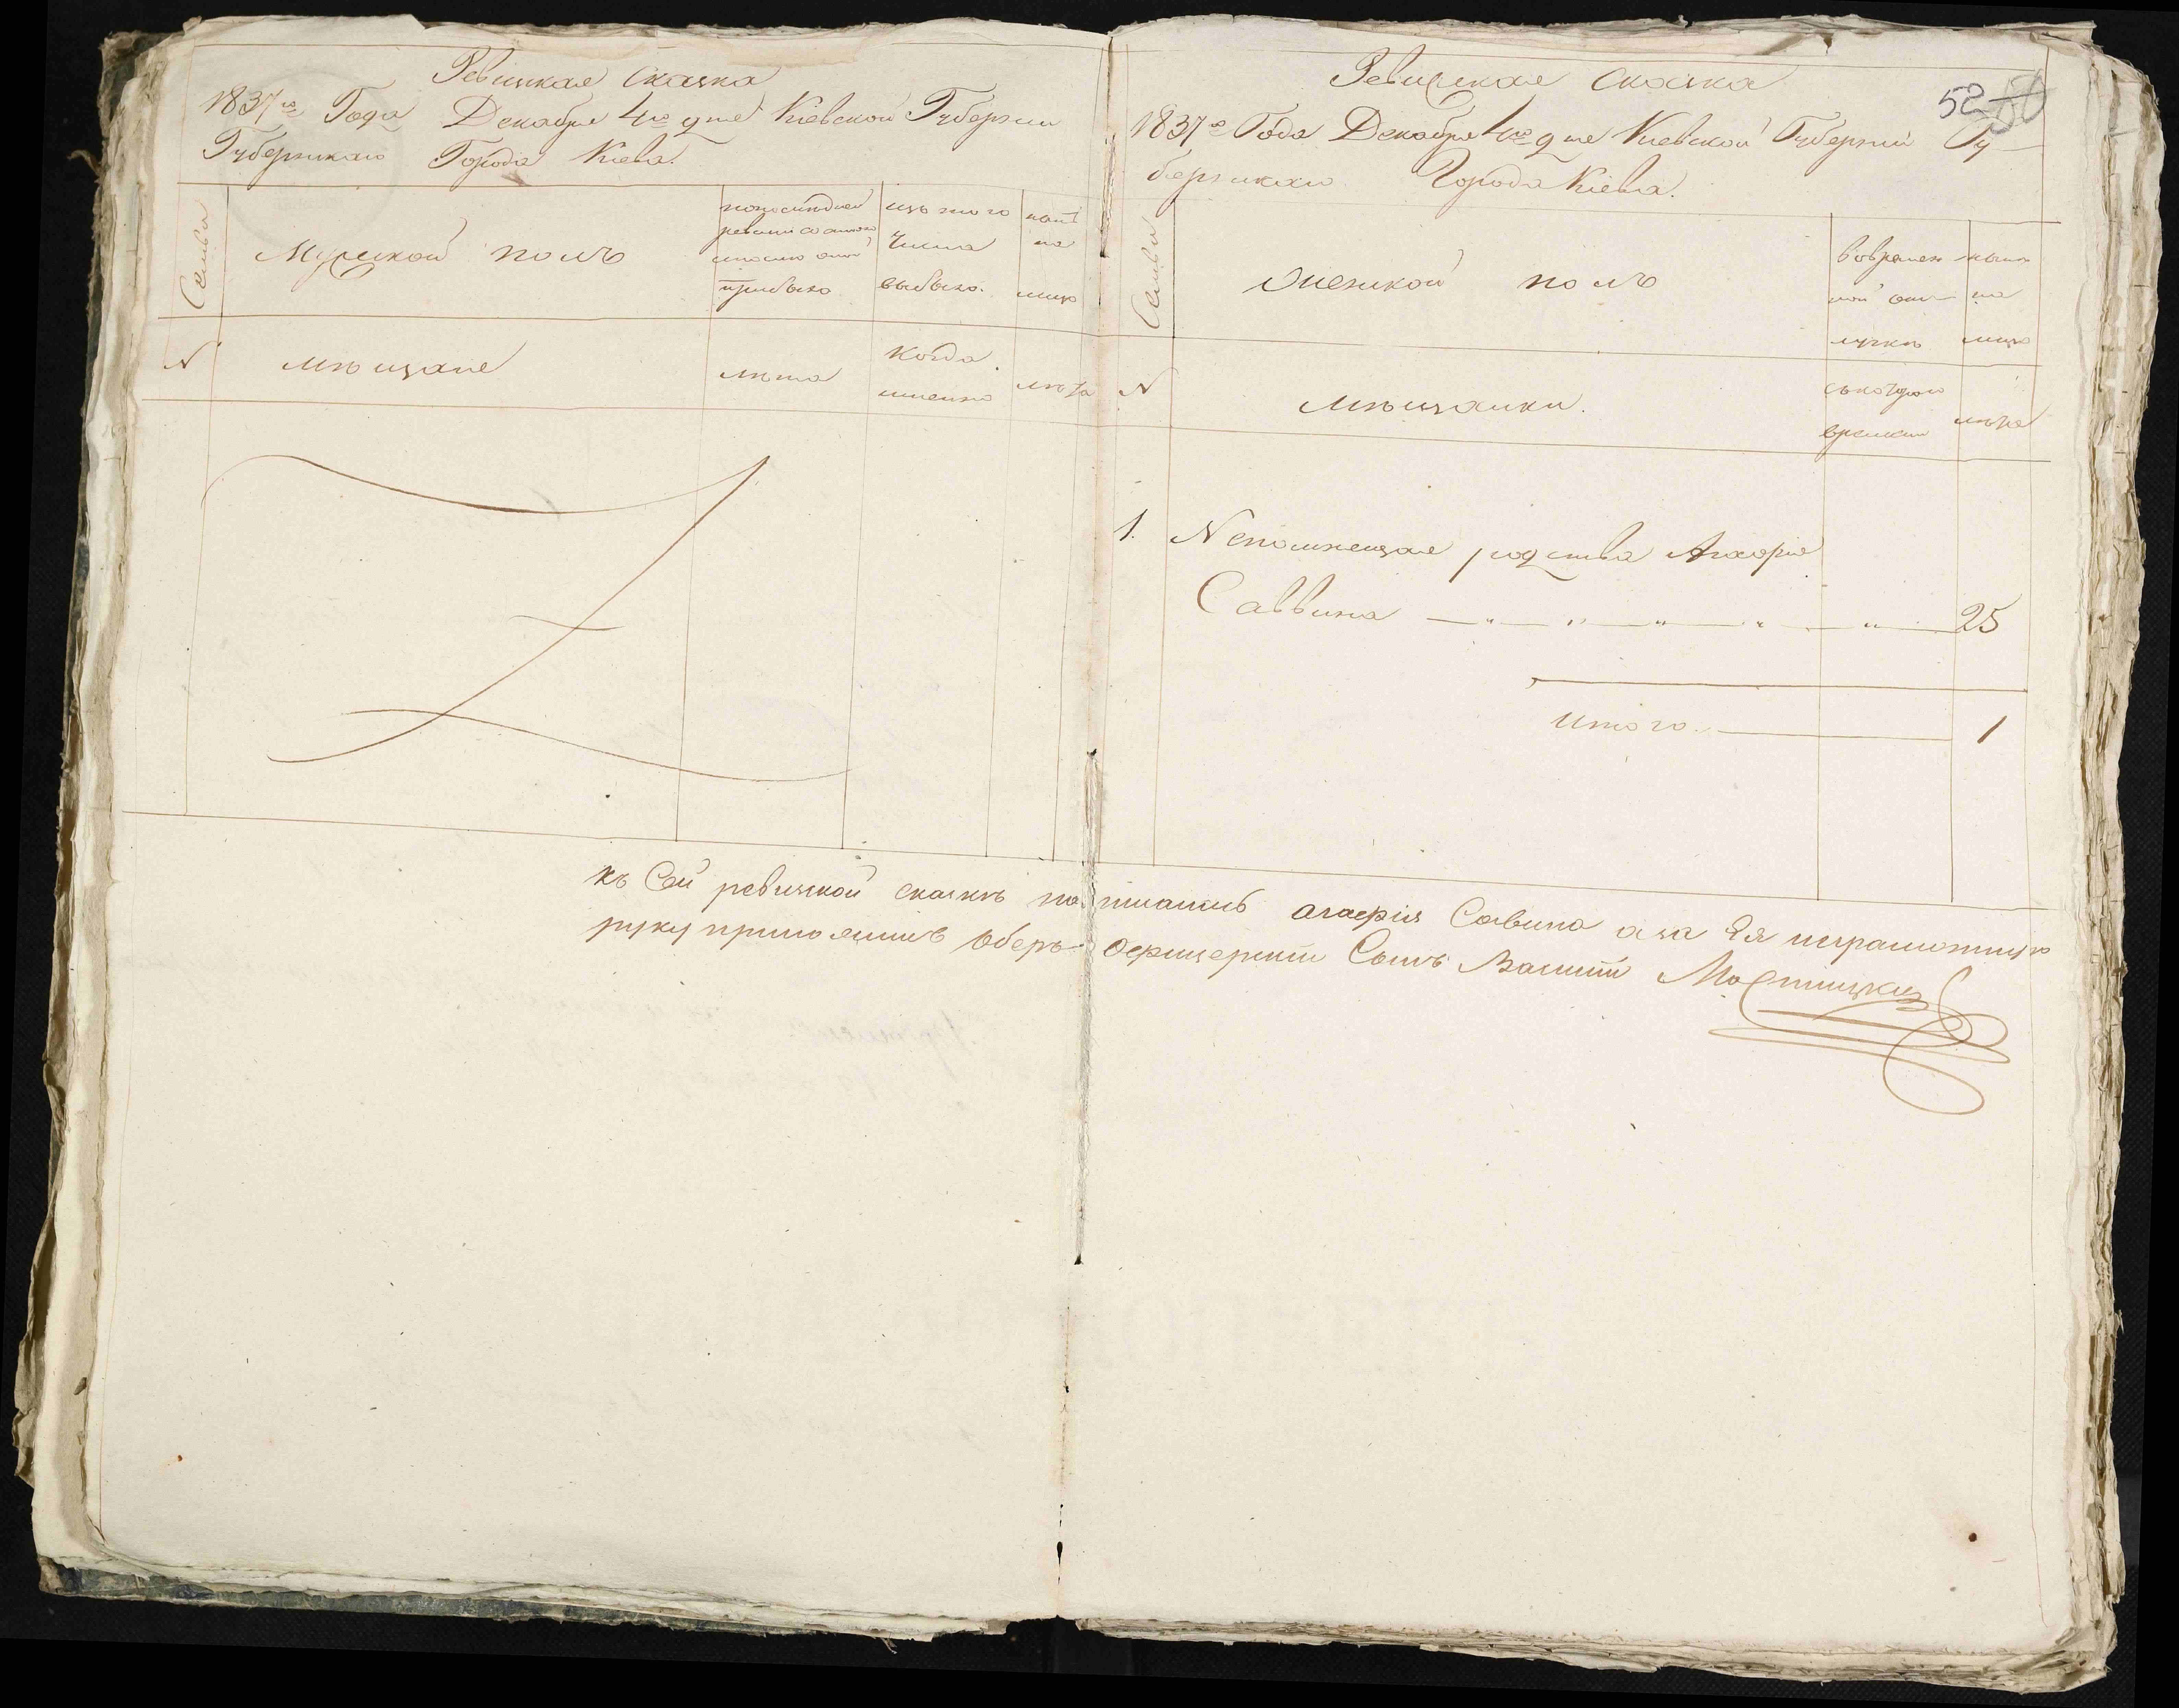 Ревижская сказка
1837го Года Декабря 4го дня Киевской Губернии
Губернскаго Города Киева.
Семьи
Мужеской полъ
по последней
ревизии состояло
и после оной
прибыло
изъ того
числа
выбыло.
ныне
на
лицо
N
мещане
лета
когда
именно
лета
Ревижская сказка
52
1837го Года Декабря 4го дня Киевской Губернии Гу
бернскаго Города Киева.
Семьи
Женской полъ
во времен
ной от
лучке
ныне
на
лицо
N
мещанки.
съ котораго
времени
лета
1. Непомнещая родства Агафия
Саввина 25
Итого. 1
къ Сей ревижской сказкѣ подписалась агафия Савина а за Ея неграмотную
руку приложилъ оберъ офицерский Сынъ Василий